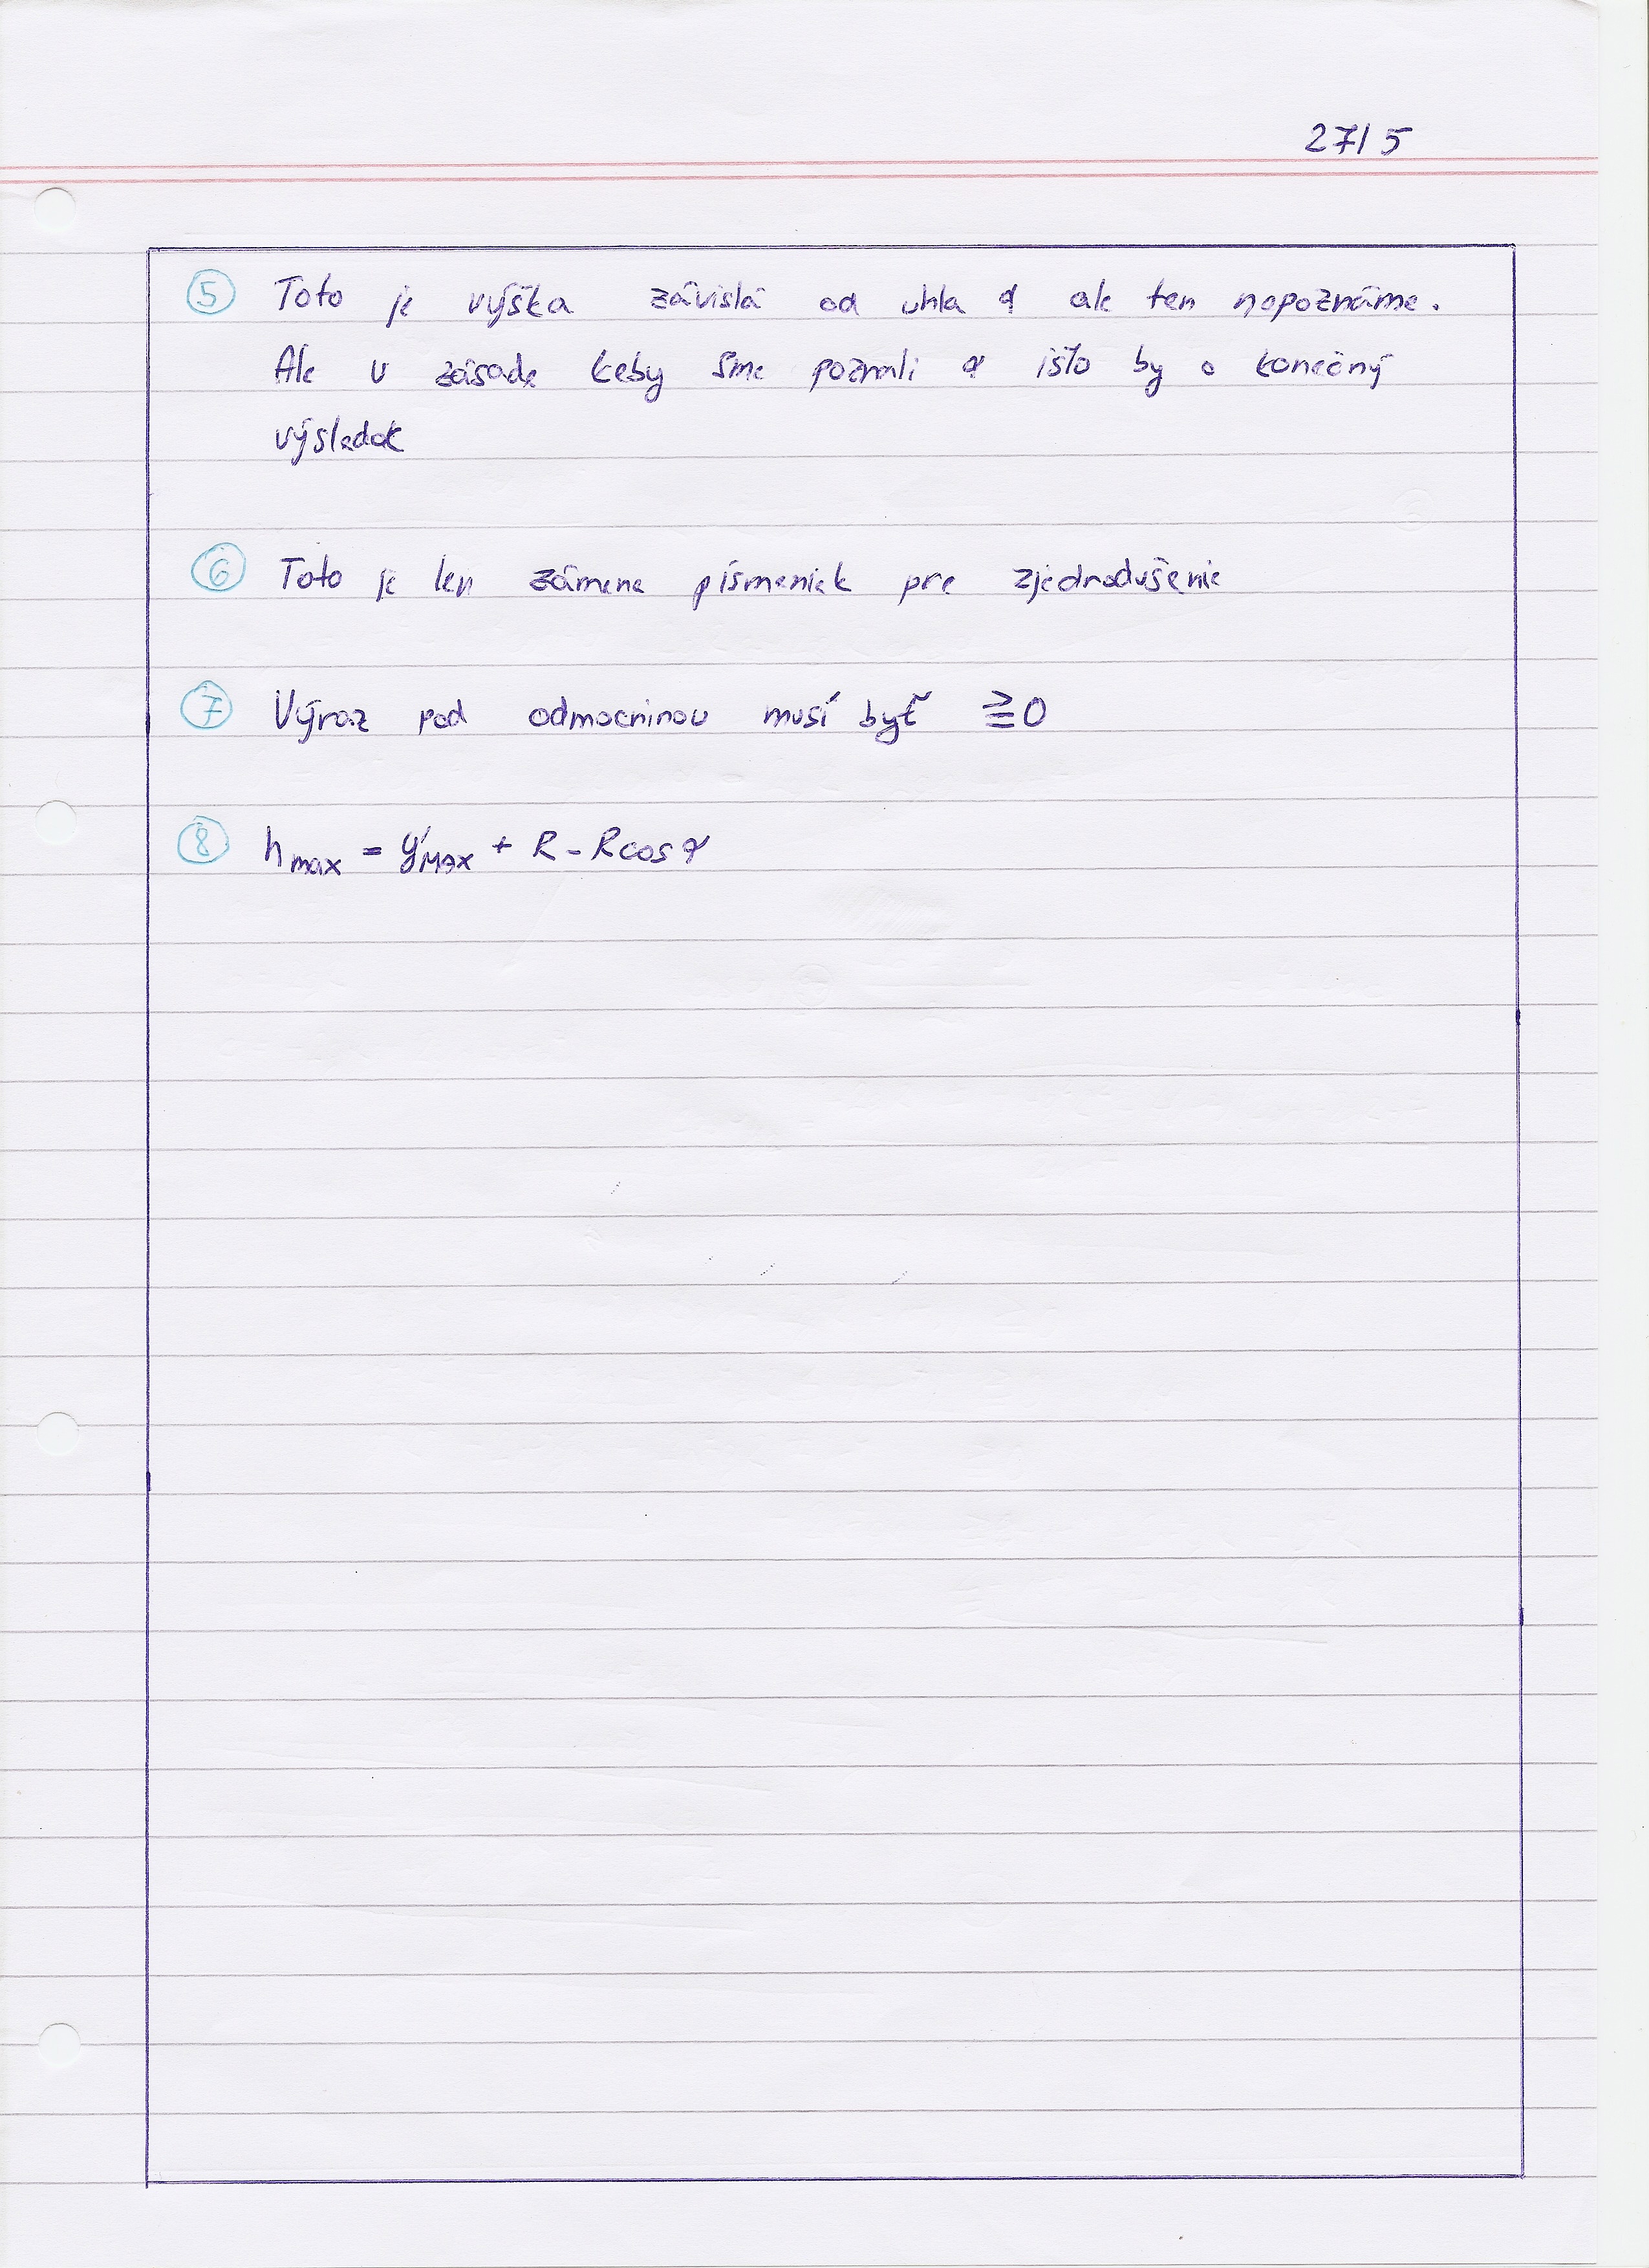 27/5
⑤ Toto je výška závislá od uhla φ ale ten nepoznáme.
Ale v zásade keby sme poznali φ išlo by o konečný
výsledok
⑥ Toto je len zámena písmeniek pre zjednodušenie
⑦ Výraz pod odmocninou musí byť ≧0
⑧ hmax = y'MAX + R - Rcosφ